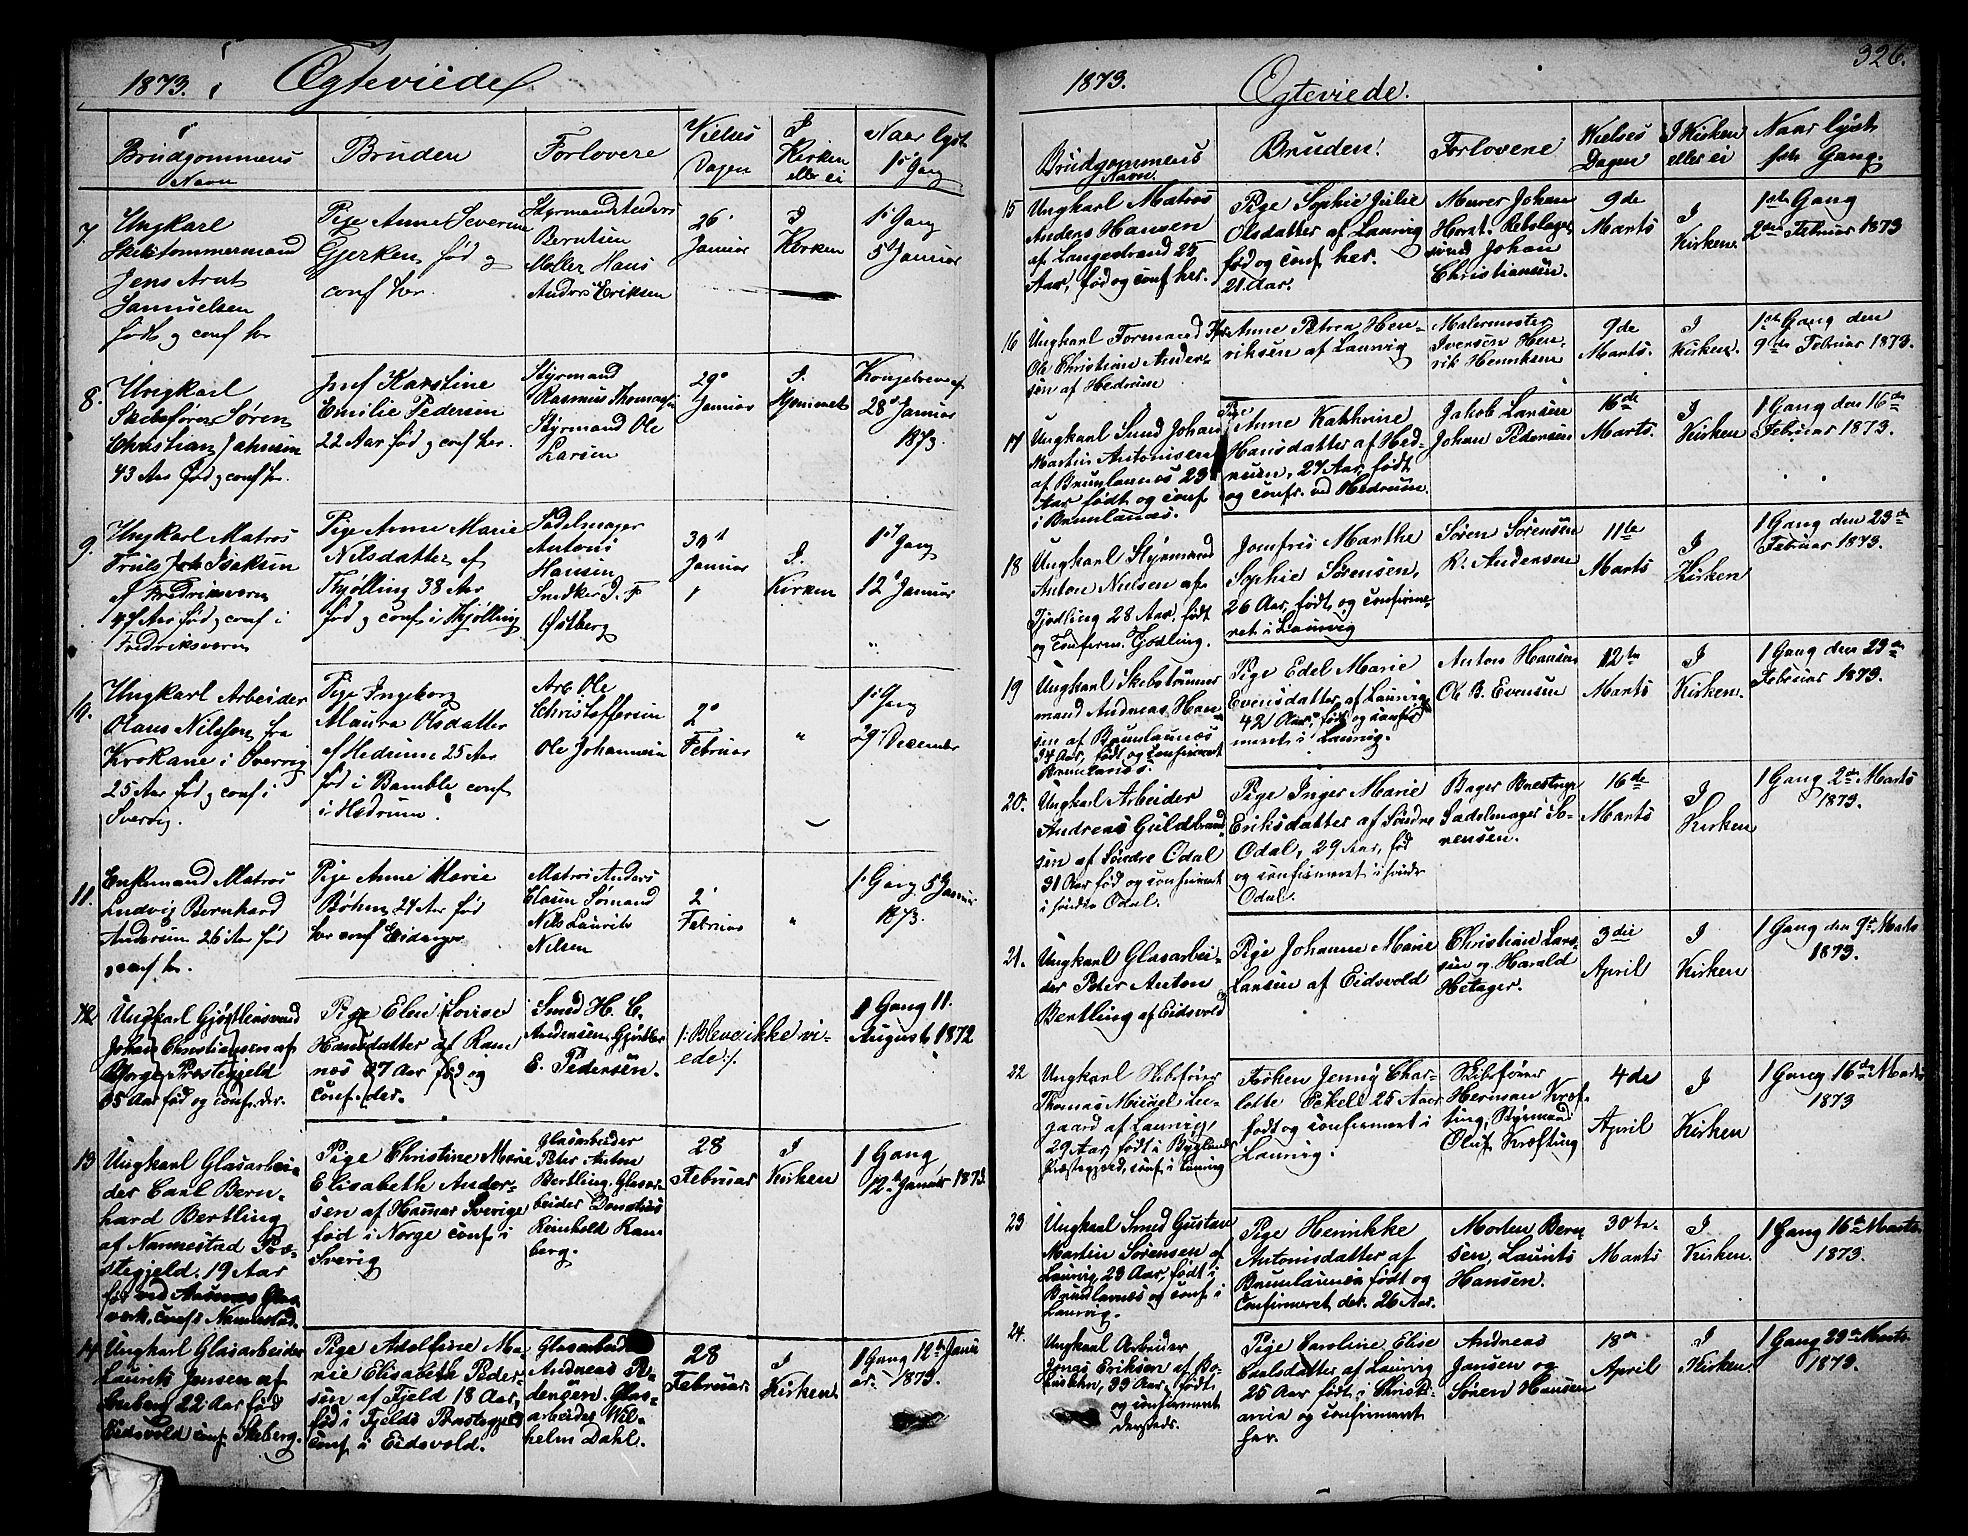 1873.
Ægteviede
Brudgommens
Navn
Bruden
Forlovere
Vielses
Dagen
I
Kirken
eller ei
Naar lyst
1s Gang
7.
Ungkarl
Jens Arnt
Samuelsen
født og conf her
Pige Anne Severine
Gjerken, fød og
conf her.
Styrmand Anders
Berntsen
Møller Hans
Anders Eriksen
26
Januar
I
Kirken
1s Gang
5 Januar
8.
Ungkarl
Skibsfører Søren
Christian Jahnsen
43 Aar fød og conf her.
Jmf Karstine
Emilie Pedersen
22 Aar fød og conf her.
Styrmand
Rasmus Thomassen
Styrmand Ole
Larsen
29
Januar
I
Hjemmet
Kongebrev af
28 Januar
1873
9.
Ungkarl Matros
Truls Joh Isaksen
af Fredriksværn
fød og conf i
Fredriksværn
Pige Anne Marie
Nilsdatter af
Thjølling 38 Aar
fød og conf i Thjølling
Sadelmager
Antons
Hansen
Snedker I. F.
Østberg
30
Januar
I.
Kirken
1s Gang
12 Januar
10.
Ungkarl Arbeider
Olaus Nilsson fra
Krokane i Sverrig
25 Aar fød og conf i
Sverrig.
Pige Ingeborg
Maura Olsdatter
af Hedrum 25 Aar
fød i Bamble conf
i Hedrum.
Arb. Ole
Christoffersen
Ole Johannesen
2
Februar
"
1s Gang
29 December
11.
Enkemand Matros
Ludvig Bernhard
Andersen 26 Aar fød
og conf her.
Pige Anne Marie
Bøhm 27 Aar fød
her conf Eidanger
Matros Anders
Clausen Sømand
Nils Laurits
Nilsen
2
Februar
"
1s Gang 5 Januar
1873.
12
Ungkarl Gjørtlersvend
Johan Christiansen af
Borge Præstegjeld
35 Aar fød og conf. der.
Pige Elen Lovise
Hansdatter af Ram
nes 27 Aar fød og
conf. der.
Smed H. C.
Andersen, Gjørtler
E. Pedersen.
/: Bleve ikke vi-
ede :/.
1 Gang 11.
August 1872
13
Ungkarl Glasarbei-
der Carl Bern-
hard Bertling
af Nannestad Præ-
stegjeld. 19 Aar
fød ved Aasnæs Glas
værk, conf. i Nannestad.
Pige Christine Marie
Elisabeth Ander-
sen af Hamar Sverige
fød i Norge conf. i
Sverig
Glasarbeider
Peter Anton
Bertling. Glasar-
beider Donatius
Reinhold Ram-
berg.
28
Februar
I
Kirken
1 Gang
12te Januar 1873
14
Ungkarl Glasarbeider
Laurits Jensen af
22 Aar fød
Eidsvold conf.
Pige Adolfine Ma-
rie Elisabeth Peder-
sen af Fjeld 18 Aar,
fød i Fjelds Præstegjeld
conf. i Eidsvold.
Glasarbeider
Andreas Pe-
dersen. Glas-
arbeider Wil-
helm Dahl.
28
Februar.
I
Kirken
1 Gang 12te Janu
ar. 1873.
326.
1873.
Ægteviede.
Brudgommens
Navn.
Bruden.
Forlovere
Vielses
Dagen
I Kirken
eller ei
Naar lyst
1ste Gang.
15
Ungkarl Matros
Anders Hansen
af Langestrand 25
Aar, fød og conf her.
Pige Sophie Julie
Olsdatter af Laurvig
fød og conf her.
21 Aar.
Murer Johan
Horst. Rebslager
svend Johan
Christiansen.
9de
Marts
I
Kirken.
1ste Gang
2den Februar 1873
16
Ungkarl Formand
Ole Christian Ander-
sen af Hedrum
Anne Petrea Hen-
riksen af Laurvig
Malermester
Iversen Hen-
rik Henriksen
9de
Marts.
I
Kirken.
1ste Gang den
9de Februar 1873.
17
Ungkarl Smed Johan
Martin Antonisen
af Brunlanæs 23
Aar født og conf
i Brunlanæs.
Pige
Anne Kathrine
Hansdatter af Hed-
rum, 27 Aar, født
og conf. ved Hedrum.
Jakob Larsen
Johan Pedersen
16de
Marts.
I
Kirken
1 Gang den 16de
Februar 1873.
18
Ungkarl Styrmand
Anton Nielsen af
Tjødling 28 Aar, født
og confirm. Tjødling.
Jomfru Marthe
Sophie Sørensen,
26 Aar, født og confirme-
ret i Laurvig
Søren Sørensen
K. Andersen
11te
Marts
I
Kirken
1 Gang den 23de
Februar 1873.
19
Ungkarl Skibstømmer
mand Andreas Han-
sen af Brunlanæs
34 Aar, født og confirmert
Brunlanæs.
Pige Edel Marie
Evensdatter af Laurvig
42 Aar, født og confir
meret i Laurvig.
Anton Hansen
Ole B. Evensen
12te
Marts
I
Kirken.
1 Gang den 23de
Februar 1873.
20.
Ungkarl Arbeider
Andreas Guldbrand-
sen af Søndre Odal
31 Aar fød og confirmert
i søndre Odal.
Pige Inger Marie
Eriksdatter af Søndre
Odal, 29 Aar, fød
og confirmeret i søndre
Odal.
Bager Bæstrup
Sadelmager Sø-
rensen.
16de
Marts
I
Kirken
1 Gang 2den Marts
1873.
21.
Ungkarl Glasarbei-
der Peter Anton
Bertling af Eidsvold
Pige Johanne Marie
Larsen af Eidsvold
Christian Lars-
sen og Harald
Hetager.
3die
April
I
Kirken
1 Gang den 9de Marts
1873.
22
Ungkarl Skibsfører
Thomas Michael Lu-
gaard af Laurvig,
29 Aar, født i Byglands
Præstegjeld, conf. i Laurvig
Frøken Jenny Char-
lotte Eckel, 25 Aar
født og confirmeret i
Laurvig.
Skibsfører
Herman Kræf-
ting, Styrmand
Oluf Kræfting
4de
April
I
Kirken
1 Gang 16de Marts
1873
23
Ungkarl Smed Gustav
Martin Sørensen af
Laurvig, 23 Aar, født i
Brunlanæs og conf. i
Laurvig.
Pige Henrikke
Antonisdatter af
Brunlanæs født og
confirmeret der. 26 Aar.
Morten Bern
sen, Laurits
Hansen.
30te
Marts
I
Kirken.
1 Gang 16de Marts
1873.
24.
Ungkarl Arbeider
Jonas Erikson af Bo-
huslehn, 33 Aar, født
og confirmert
dersteds.
Pige Caroline Elise
Carlsdatter af Laurvig
25 Aar, født i Christi-
ania og confirmeret
her.
Andreas
Jansen og
Søren Hansen
18de
April
I
Kirken
1 Gang 23de Marts
1873.